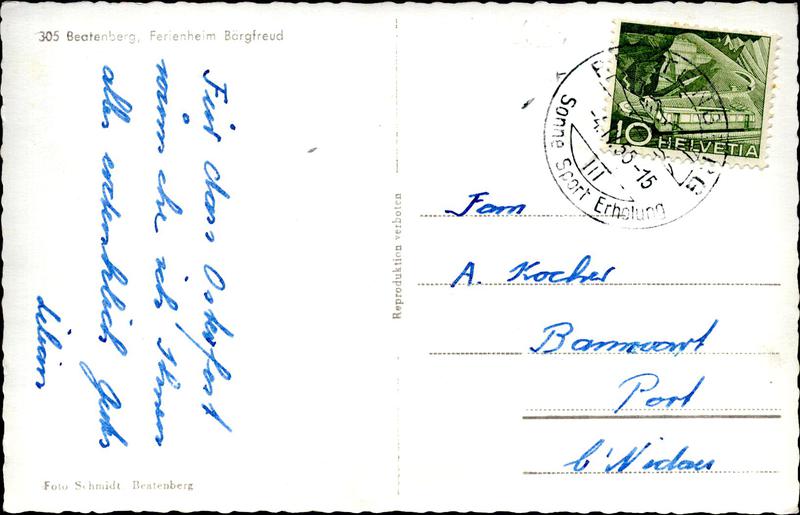 305 Beatenberg, Ferienheim Bärgfreud
Für das Osterfest
wünsche ich Ihnen
alles erdenklich Gute
Lilian
Foto Schmidt Beatenberg
Reproduktion verboten
10 HELVETIA
BEATENBERG
55-15
III
Sonne Sport Erholung
Fam
A. Kocher
Bannwart
Port
b'Nidau